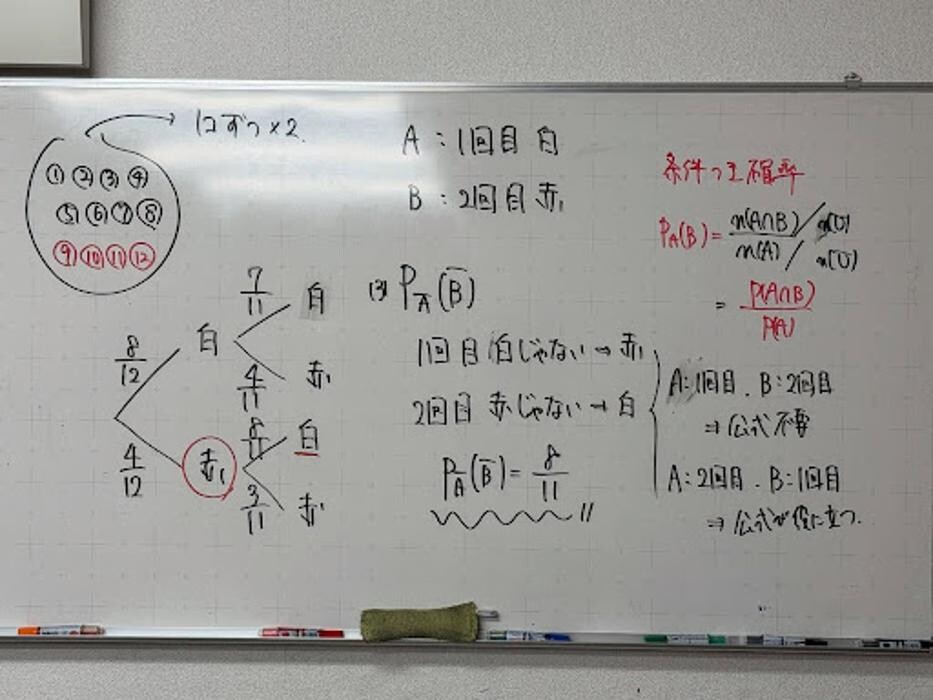 1コずつ×2.
① ② ③ ④
⑤ ⑥ ⑦ ⑧
⑨ ⑩ ⑪ ⑫
A : 1回目 白
B : 2回目 赤
条件つき確率
P_A(B) = n(A∩B)/n(U) / n(A)/n(U)
= P(A∩B)/P(A)
8/12 白
7/11 白
4/11 赤
4/12 赤
8/11 白
3/11 赤
(3) P_Ā(B̄)
1回目 白じゃない → 赤
2回目 赤じゃない → 白
P_Ā(B̄) = 8/11
A:1回目. B:2回目
⇒ 公式不要
A:2回目. B:1回目
⇒ 公式が役に立つ.